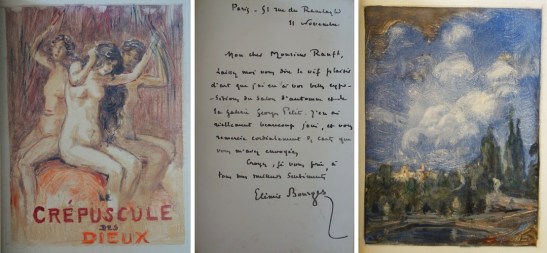 LE
CRÉPUSCULE
DES
DIEUX
Paris - 51 rue du Ranelagh
11 Novembre
Mon cher Monsieur Ranft,
Laissez moi vous dire le vif plaisir
d'art que j'ai eu à vos belles expo-
sitions du Salon d'automne et de
la galerie Georges Petit. J'en ai
réellement beaucoup joui, et vous
remercie cordialement des cartes que
vous m'avez envoyées
Croyez, je vous prie, à
tous mes meilleurs sentiments
Elémir Bourges